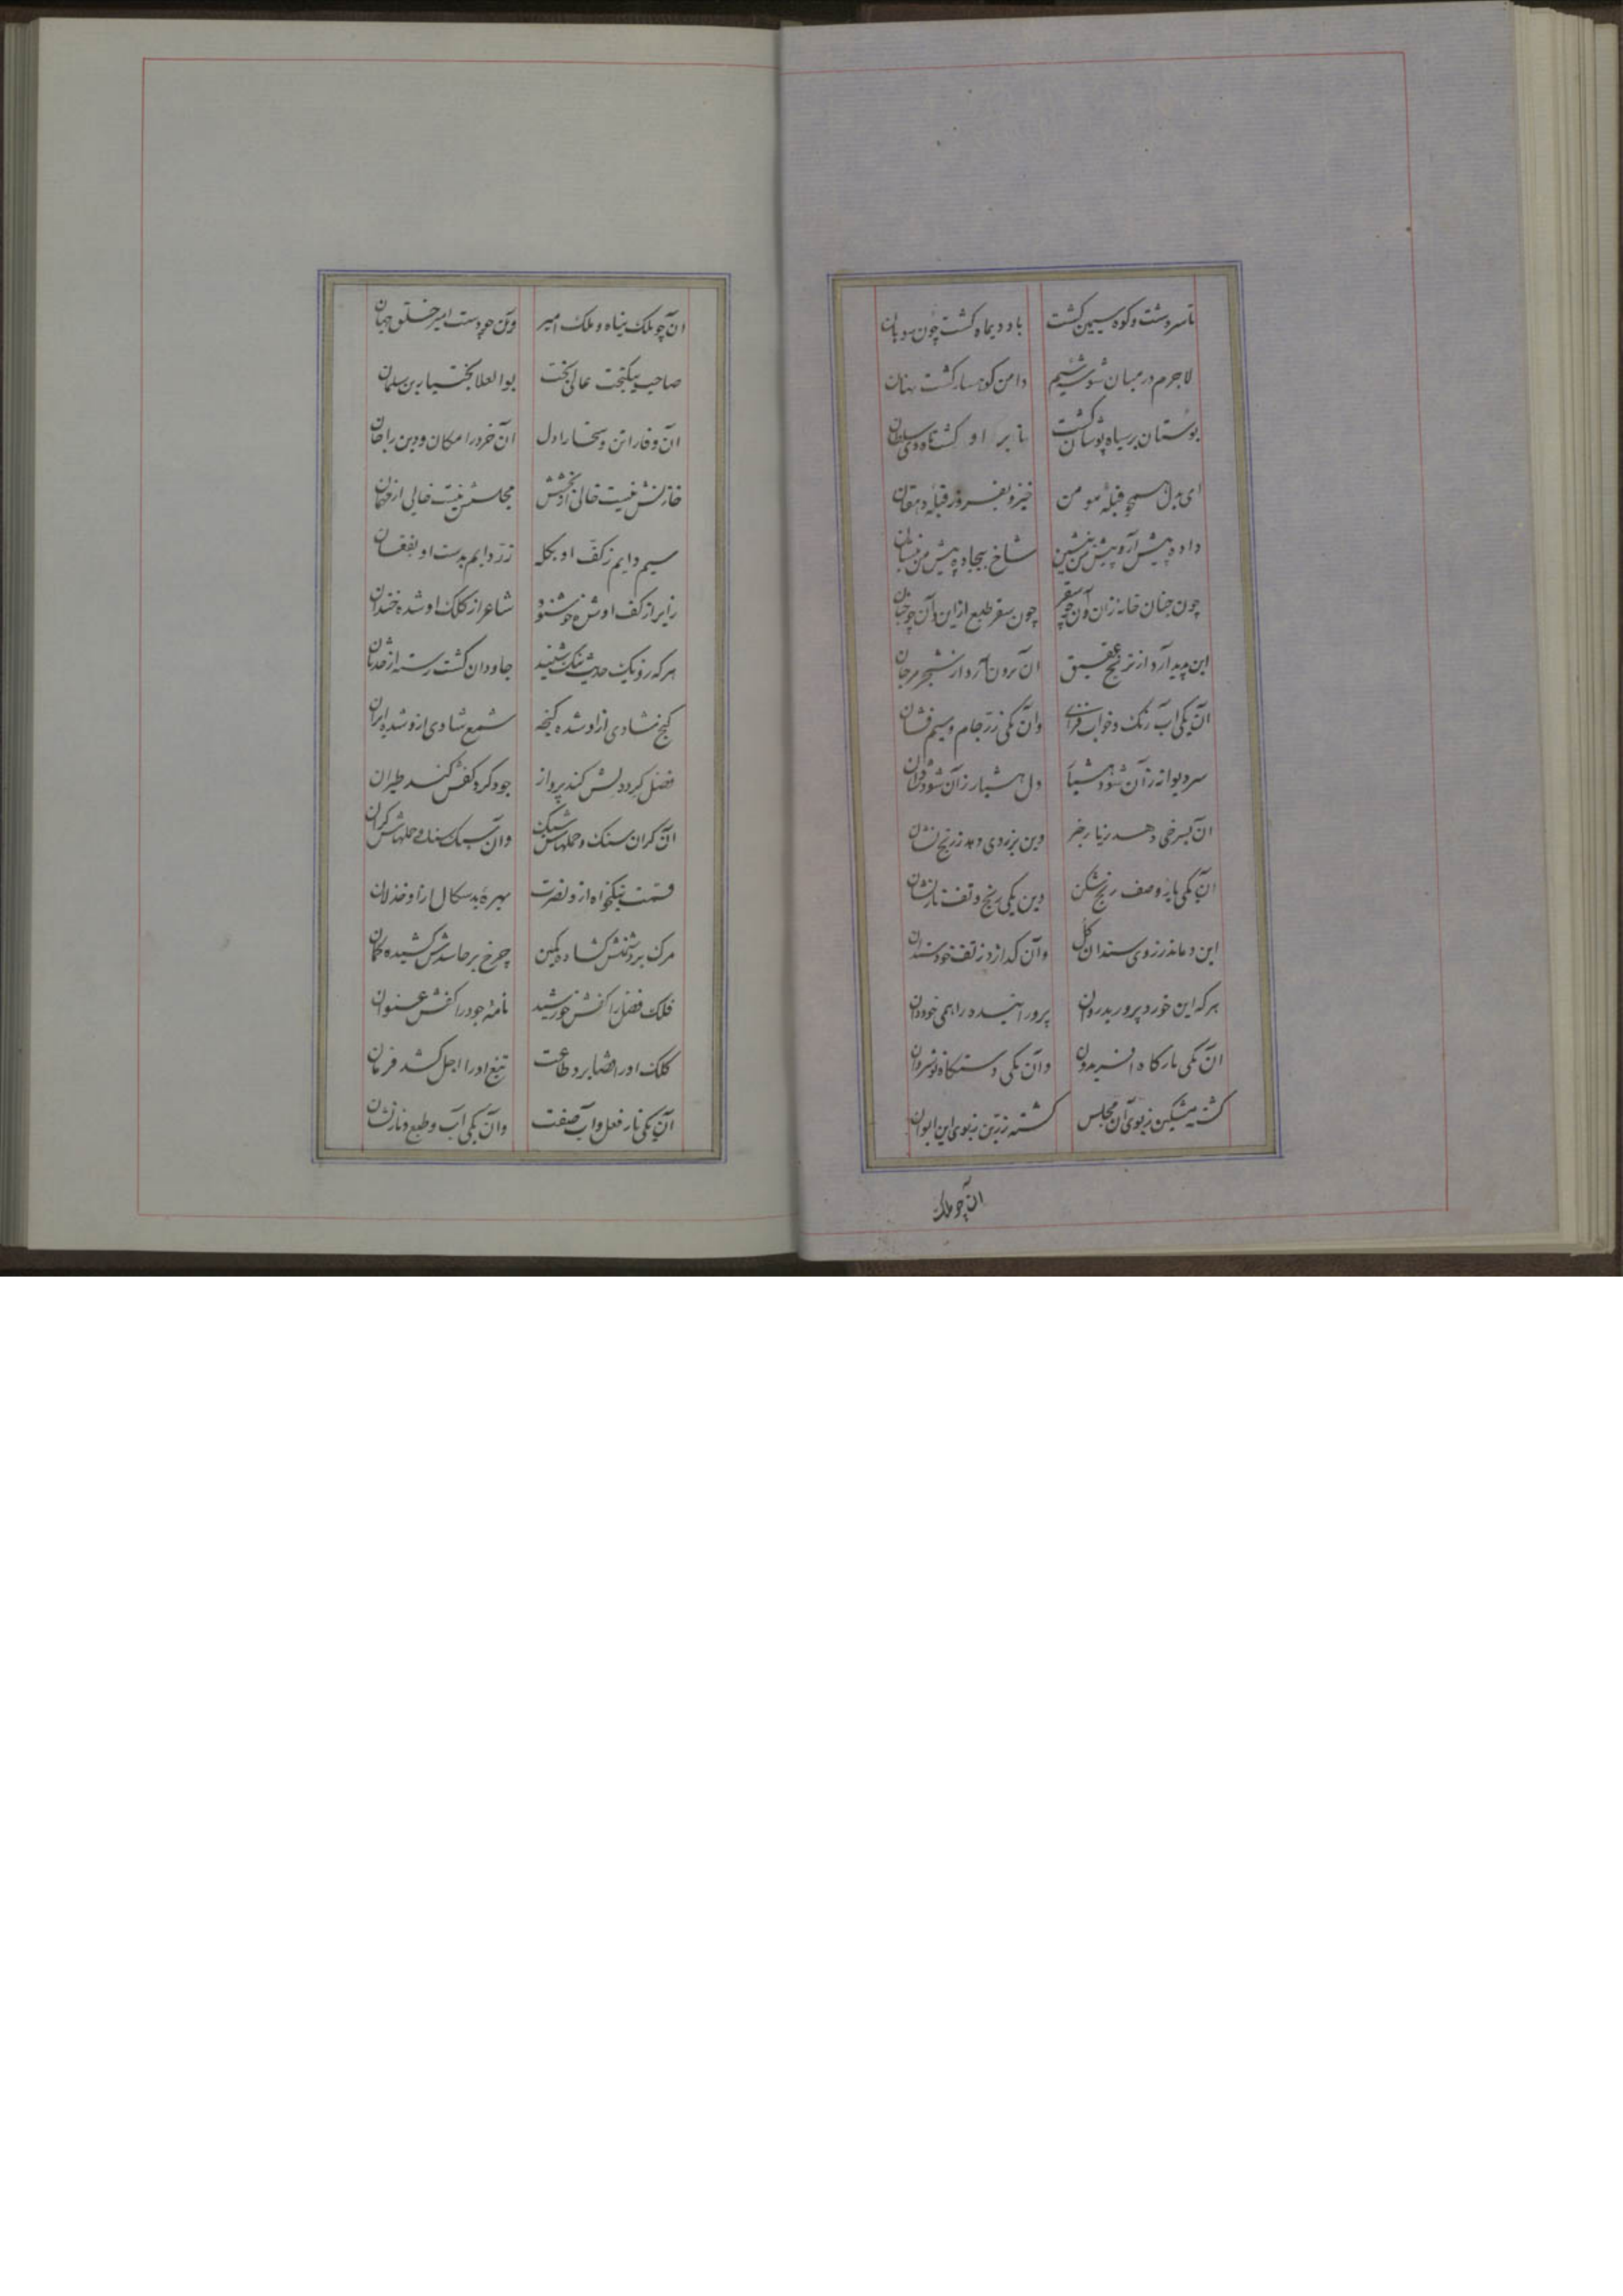 تا سر دشت و کوه سیمین کشت باد دیماه کشت چون سوهان
لاجرم در میان شوشه سیم دامن کوهسار کشت نهان
بوستان پر سیاه پوشان کشت تا بر او کشت ماه دی سلطان
ای بدل همچو قبله مومن خیز و بفروز قبله دهقان
داده پیش آر و پیش من بنشین شاخ بیجاده پیش من بنشان
چون جنان خانه زان و آن چو سقر چون سقر طبع از این و آن چو جنان
این پدید آرد از ترنج عقیق ان برون آرد از شجر مرجان
آن یکی آب رنک و خواب فزای وان یکی زر جام و سیم فشان
سر دیوانه زان شود هشیار دل هشیار زان شود
ان بسرخی دهد ز بار خبر وین بزردی دهد ز رنج نشان
ان یکی وصف رنج شکن وین یکی رنج و تفت نار نشان
این دماند ز روی سندان کل وان کدازد ز تف خود سندان
هر که این خورد پرورید روان پرورانیده را همی خورد آن
ان یکی بارکاه افریدون وان یکی دستکاه نوشروان
کشته مشکین ز بوی آن مجلس کشته زرین ز نوی این ایوان
ان چو ملک
ان چو ملک پناه و ملک امیر وین چو دست امیر خلق جهان
صاحب نیکبخت عالی بخت بوالعلا بختیار بن سلمان
ان وقار را تن و سخا را دل ان خرد را مکان و دین را جان
خازنش نیست خالی از بخشش مجلسش نیست خالی از مهمان
سیم دایم ز کف او بکله زر دایم بدست او بفغان
زایر از کف او شده خوشنود شاعر از کلک او شده خندان
هر که روزیک حدیث نیک شنید جاودان کشت رسته از حدثان
کنج شادی ازاو شده کنجه شمع شادی ازو شده ایران
فضل کرد دلش کند پرواز جود کرد کفش کند طیران
آن کران سنک و حملهاش سبک وان سبک سنک و حملهاش کران
قسمت نیکخواه ازو نصرت بهره بدسکال ازاو خذلان
مرک بر دشمنش کشاده کمین چرخ بر حاسدش کشیده کمان
فلک فضل را کفش خورشید نامه جود را کفش عنوان
کلک او را قضا برد طاعت تیغ او را اجل کشد فرمان
آن یکی نار فعل و آب صفت وان یکی آب طبع و نار نشان